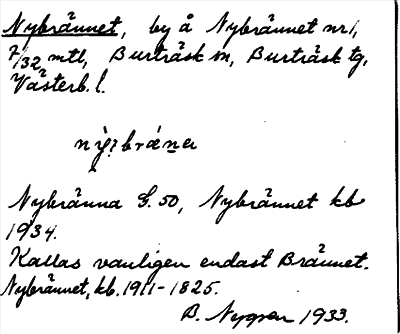 Nybrännet, by å Nybrännet nr 1,
7/32 mtl, Burträsk sn, Burträsk tg,
Västerb. l.
Nybränna G. 50, Nybrännet kb
1934.
Kallas vanligen endast Brännet.
Nybrännet, kb. 1911-1825.
B. Nygren 1933.